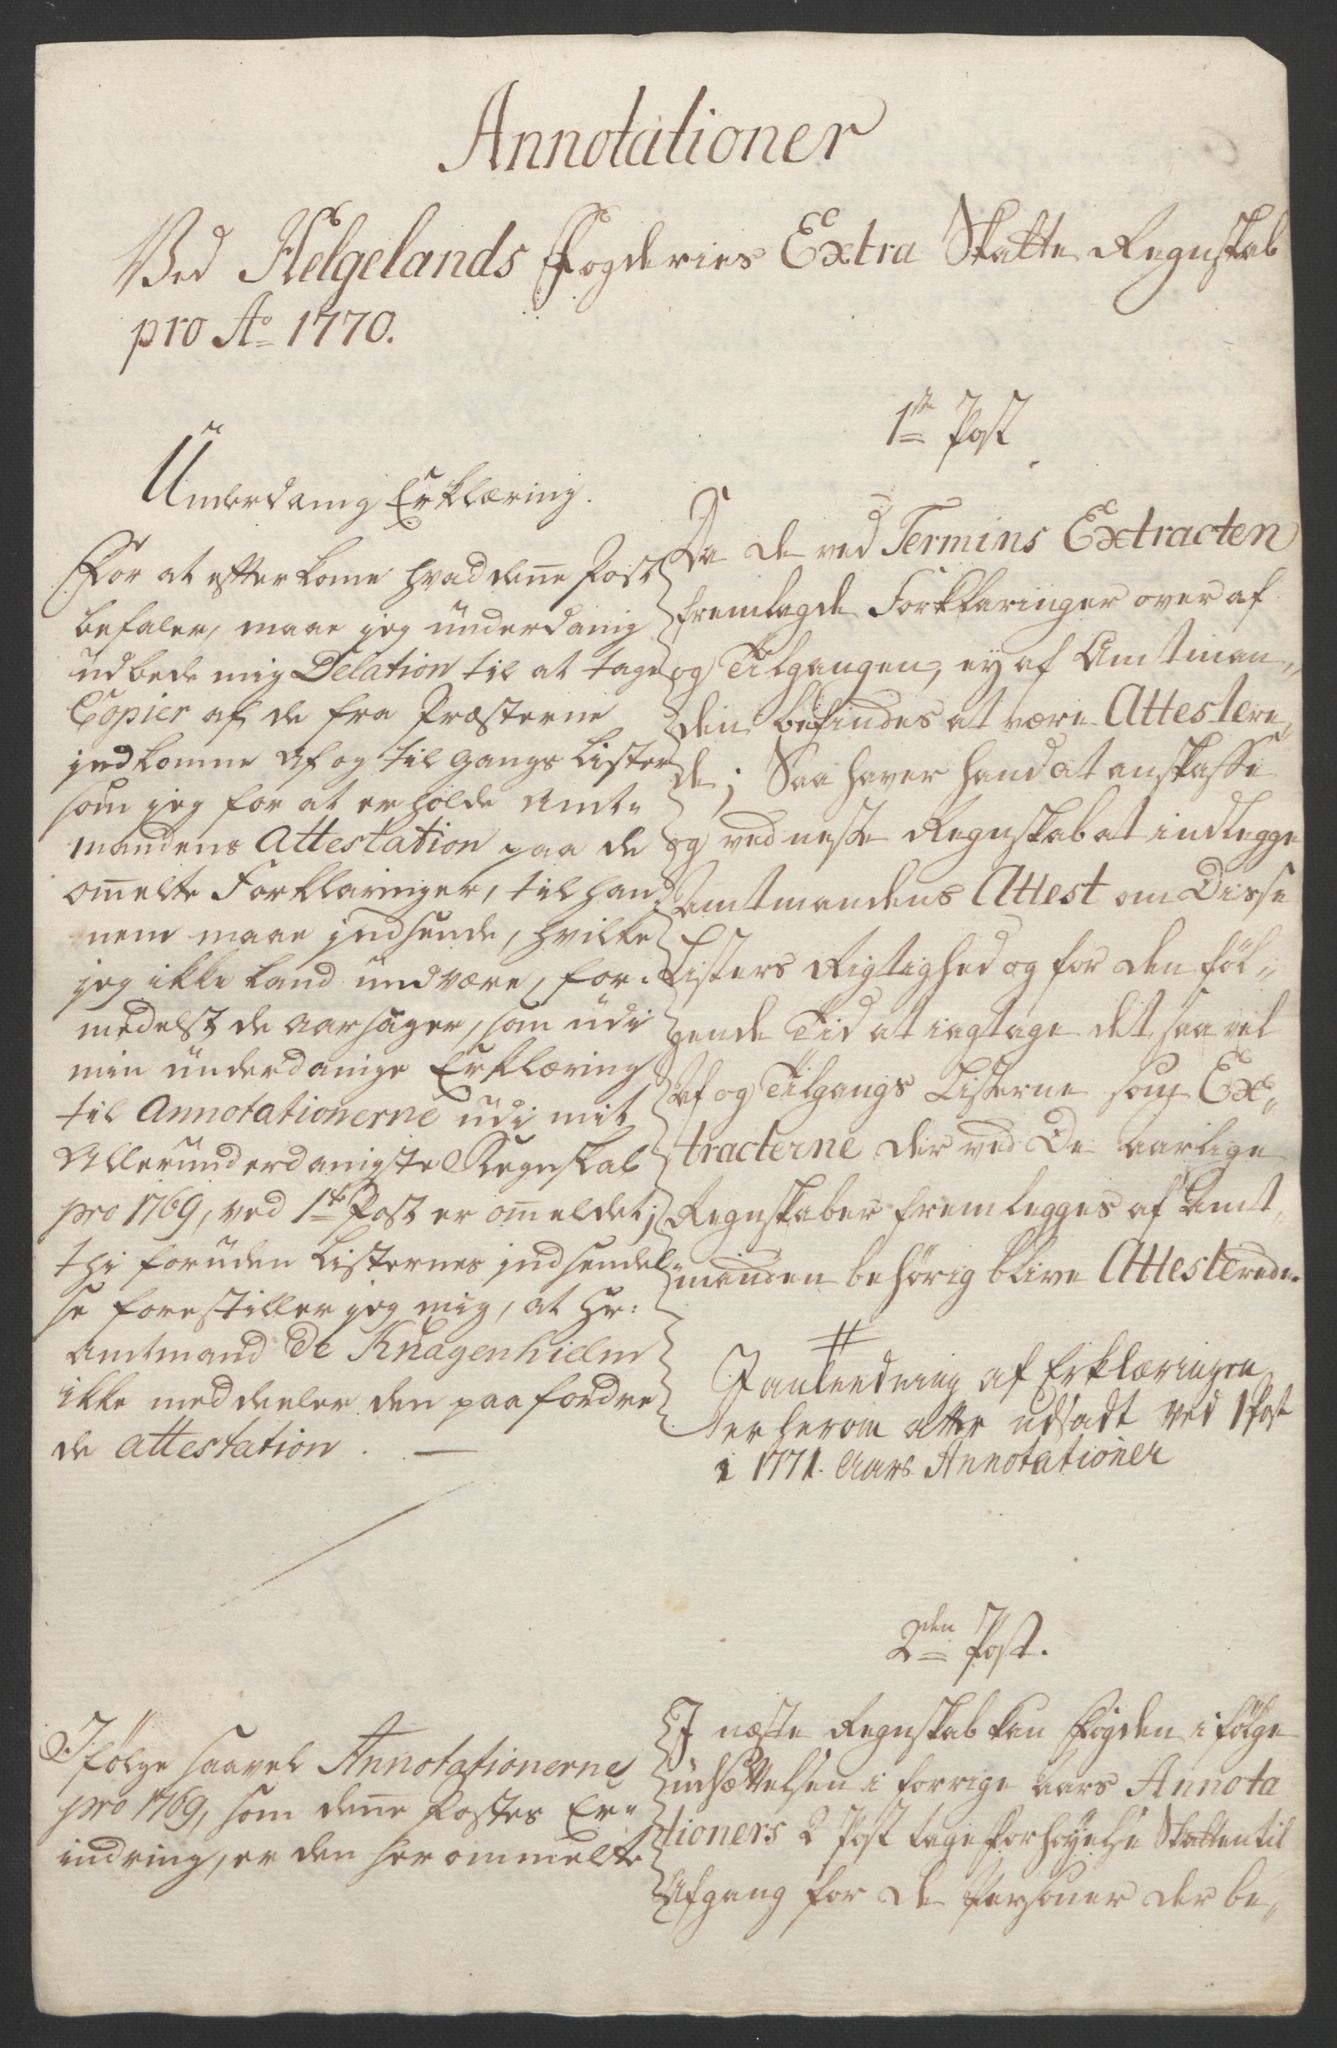 Annotationer
Ved Helgelands Fogderies Extra Skatte Regnskab
pro Ao 1770.
Underdanig Erklæring.
For at efterkome hvad dene Post
befaler, maae jeg underdanig
udbede mig Delation til at tage
Copier af de fra Præsterne
indkomne Af og til gangs Lister
som jeg for at erholde Amt„
mandens Attestation paa de
omelte Forklaringer, til han„
nem maae indsende, hvilke
jeg ikke kand undvære, for„
medelst de Aarsager, som udi
min underdanige Erklæring
til Annotationerne udi mit
Allerunderdanigste Regnskab
pro 1769, ved 1te Post er omeldet;
thi foruden Listernes indsendel„
se forestiller jeg mig, at Hr:
Amtmand De Knagenhielm
ikke meddeeler den paafordre
de attestation. —
1te Post
Da de ved Termins Extracten
fremlagde Forklaringer over af
og Tilgangen, ey af Amtman„
den befindes at være Attestere„
de; Saa haver hand at anskaffe
og ved neste Regnskab at indlegge
Amtmandens Attest om Disse
Listers Rigtighed og for den föl„
gende Tid at iagtage det saavel
Af og Tilgangs Listerne som Ex„
tracterne der ved De aarlige
Regnskaber fremlegges af Amt„
manden behörig blive Attesterede.
#
I anledning af Erklæringen
er herom atter udsadt ved 1 Post
i 1771. Aars Annotationer
I fölge saavel Annotationerne
pro 1769, som dene Postes Er„
indring, er den her ommelte
2den Post.
I næste Regnskab kan Fogden i fölge
udsættelsen i forrige Aars Annota
tioners 2 Post tage Forhöyelse Skatten til
Afgang for de Personer der be„